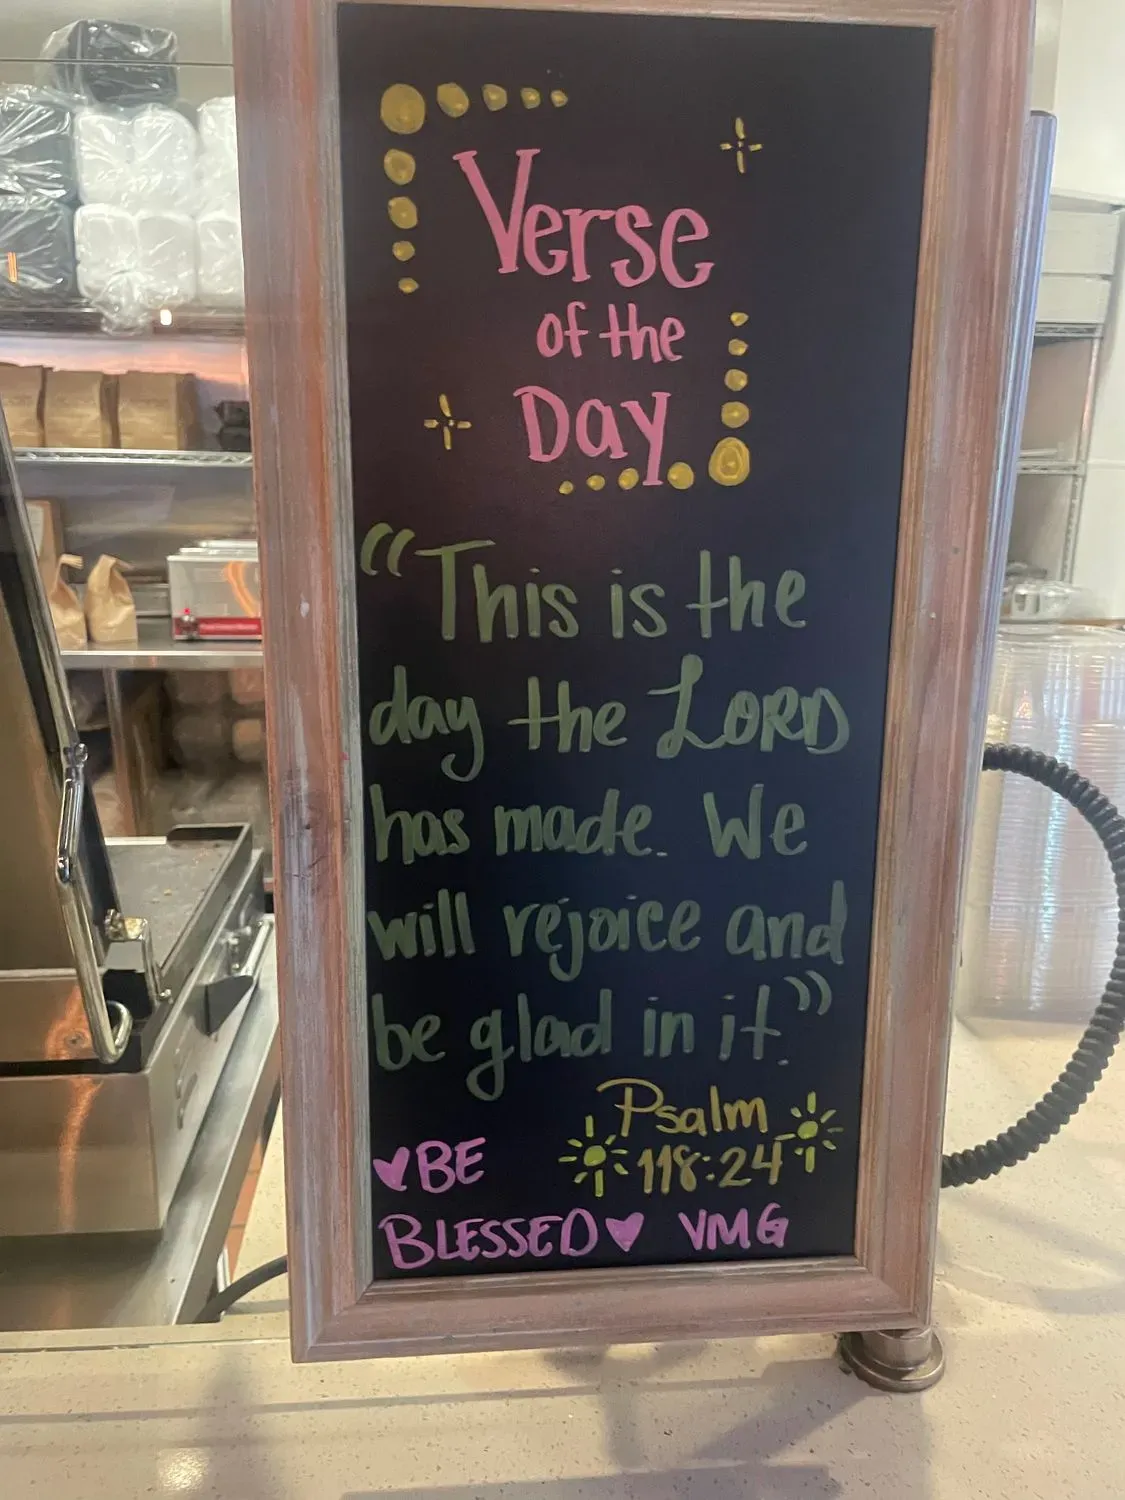 Verse
of the
Day
“This is the
day the LORD
has made. We
will rejoice and
be glad in it.”
Psalm
118:24
BE
BLESSED VMG